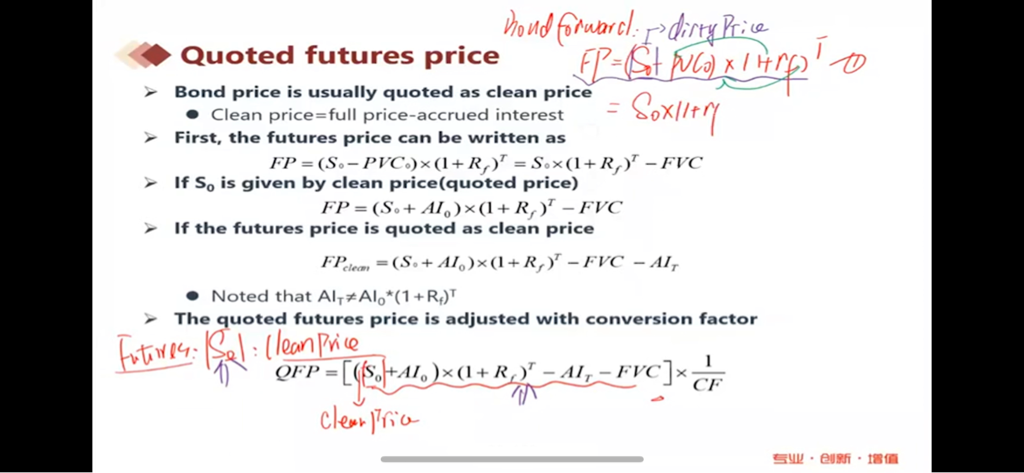 Bond forward. → dirty Price
FP=(S₀+ PVC₀) × (1+rf)ᵀ ①
= S₀×(1+rf
Quoted futures price
➢ Bond price is usually quoted as clean price
● Clean price=full price-accrued interest
➢ First, the futures price can be written as
FP = (S₀ − PVC₀)×(1+R_f)^T = S₀×(1+R_f)^T − FVC
➢ If S₀ is given by clean price(quoted price)
FP = (S₀ + AI₀)×(1+R_f)^T − FVC
➢ If the futures price is quoted as clean price
FP_clean = (S₀ + AI₀)×(1+R_f)^T − FVC − AI_T
● Noted that AI_T≠AI₀*(1+R_f)^T
➢ The quoted futures price is adjusted with conversion factor
Futures: S₀ : Clean Price
QFP = [(S₀+AI₀)×(1+R_f)^T − AI_T − FVC]× 1/CF
Clean Price
专业 · 创新 · 增值